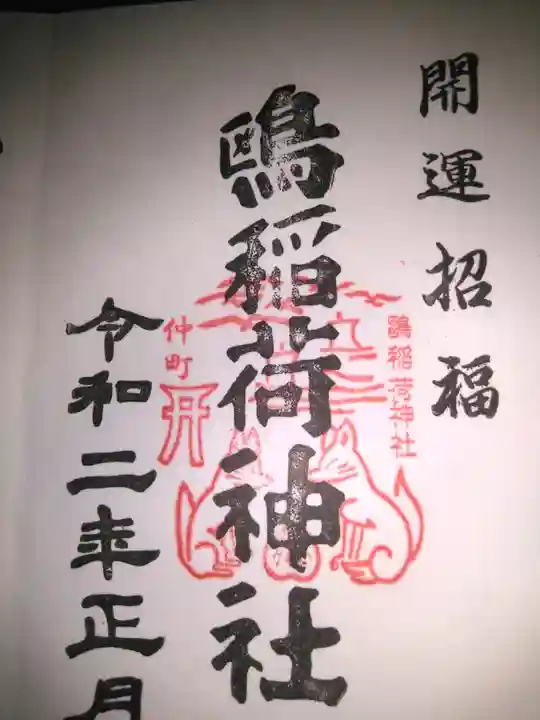 開運招福
鴎稲荷神社
鴎稲荷神社
仲町
令和二年正月